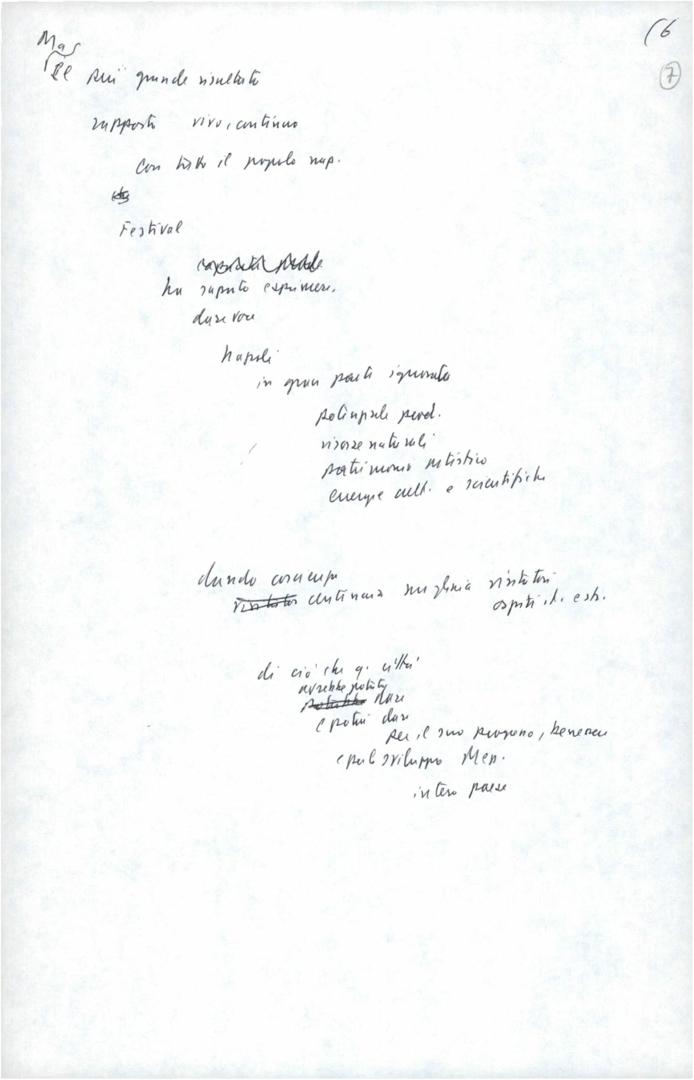 (6
7
Ma
Il più grande risultato
rapporto vivo, continuo
con tutto il popolo nap.
Festival
ha saputo esprimere,
dare voce
Napoli
in gran parte ignorata
potenziale prod.
risorse naturali
patrimonio artistico
energie cult. e scientifiche
dando coscienza
visitatori centinaia migliaia visitatori
ospiti it. est.
di ciò che q. città
avrebbe potuto
dare
e potrà dare
per il suo progresso, benessere
e per lo sviluppo Mep.
intero paese